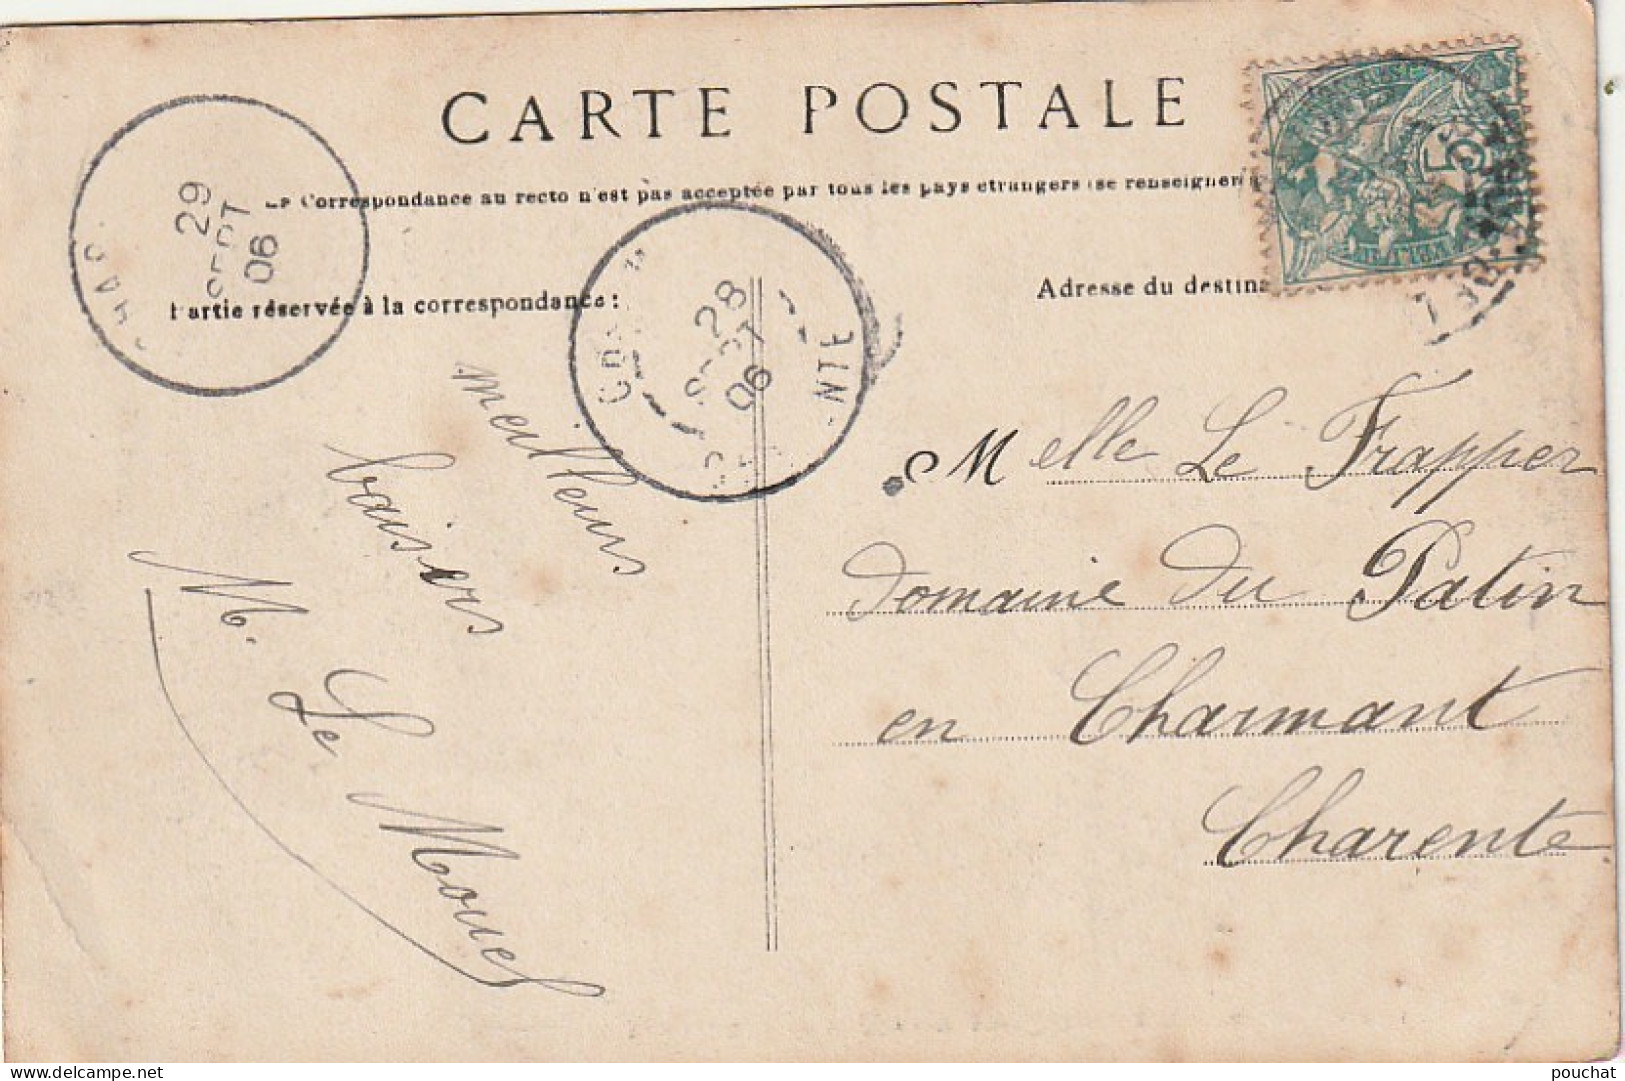 CARTE POSTALE
Correspondance au recto n'est pas acceptée par tous les pays étrangers (se renseigner
Partie réservée à la correspondance:
Adresse du destina
5
29
SEPT
06
28
SEPT
06
meilleurs
baisers
M. Le Mouel
Melle Le Frapper
Domaine du Patin
en Charmant
Charente
pouchat